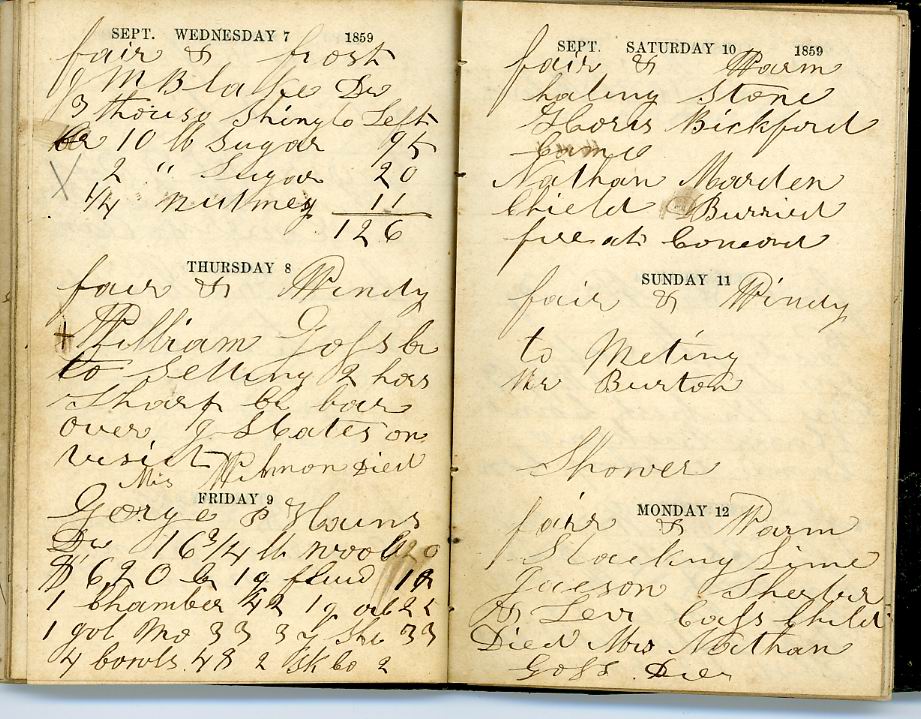 SEPT. WEDNESDAY 7 1859
fair & frost
J M Blake Dr
3 thouso Shingls Left
Cr 10 lb Sugar 95
2 " Sugar 20
1/4 nutmeg 11
126
THURSDAY 8
fair & Windy
+ William Goss Cr
to Setting 2 hors
Sharp Cr bar
over J States on
visit
Mis Wilmon Died
FRIDAY 9
George P Hains
Dr 16 3/4 lb wool
$ 6.20 Cr 1 g fluid
1 Chamber 42 1 g oil
1 gal Mo 33 33
4 bowls 48 2
SEPT. SATURDAY 10 1859
fair & Warm
haling Stone
Horis Bickford
Came
Nathan Marden
Chield Burried
fire at Concord
SUNDAY 11
fair & Windy
to Meting
Mr Burton
Shower
MONDAY 12
fair & Warm
Slacking Lime
& Levi Cass Child
Died Mrs Nathan
Goss Died